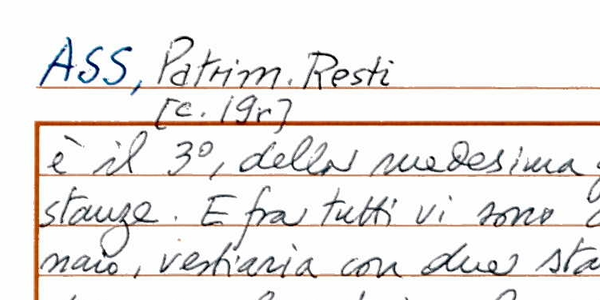 ASS, Patrim. Resti
[c. 19r]
è il 3°, della medesima
stanze. E fra tutti vi sono
naio, vestiaria con due sta